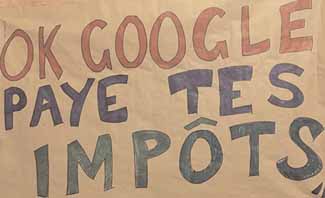 OK GOOGLE
PAYE TES
IMPÔTS